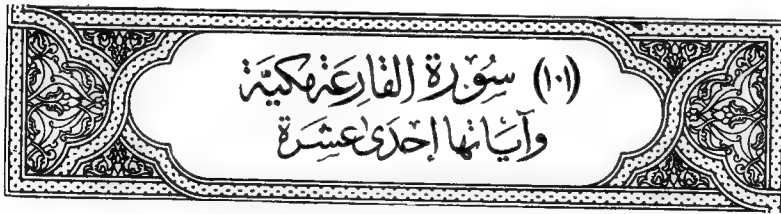 (١٠١) سُورَة القَارِعَة مَكيَّة
وَآيَاتها إحْدَى عَشِرَة